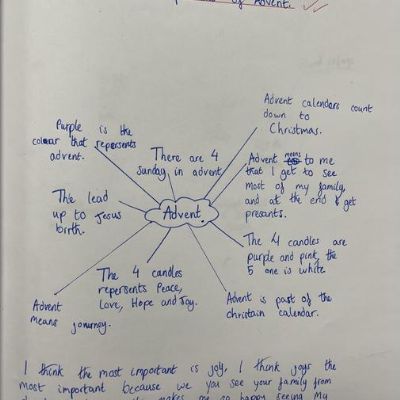 of Advent.
Advent calenders count
down to
Christmas.
Purple is the
colour that repersents
advent.
There are 4
Sunday in advent
Advent means to me
that I get to see
most of my family
and at the end I get
presants.
The lead
up to Jesus
birth.
Advent
The 4 candles are
purple and pink, the
5 one is white
The 4 candles
repersents Peace,
Love, Hope and Joy.
Advent is part of the
christain calendar.
Advent
means journey.
I think the most important is joy, I think joys the
most important because we you see your family from
me so happy seeing my